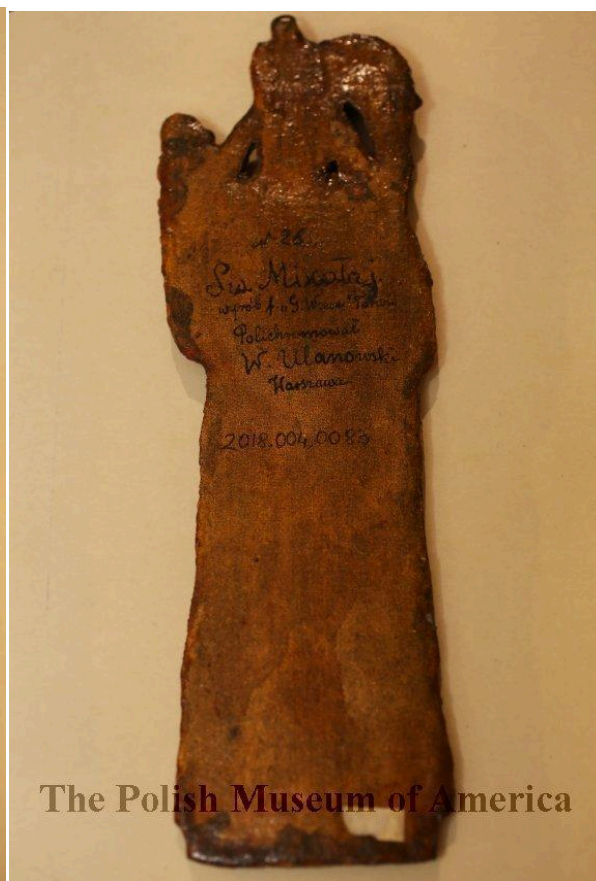 № 26
Św. Mikołaj
Polichromował
W. Ulanowski
Warszawa
2018.004.0083
The Polish Museum of America